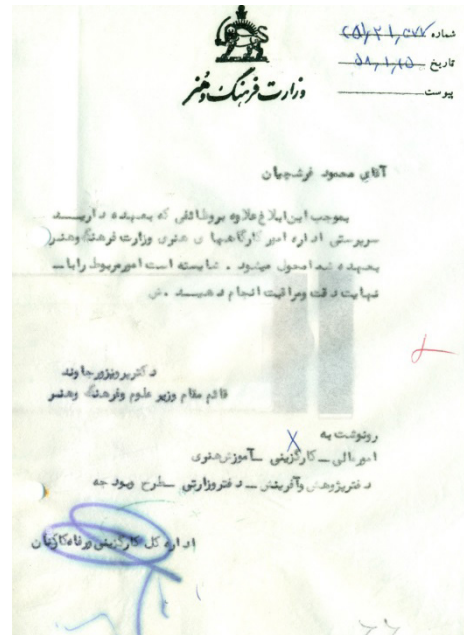 شماره ۲۵/۲۱,۵۷۷
تاریخ ۵۸,۱,۲۵
پیوست
وزارت فرهنگ و هنر
آقای محمود فرشچیان
بموجب این ابلاغ علاوه بر وظائفی که بعهده دارید
سرپرستی اداره امور کارگاهها ی هنری وزارت فرهنگ وهنر
بعهده شما محول میشود . شایسته است امور مربوط را با ـ
نهایت دقت ومراقبت انجام دهید . ش
دکتر پرویز ورجاوند
قائم مقام وزیر علوم وفرهنگ وهنر
رونوشت به
امور مالی ـ کارگزینی ـ آموزش هنری
دفتر پژوهش وآفرینش ـ دفتر وزارتی ـ طرح وبود جه
اداره کل کارگزینی و رفاه کارکنان